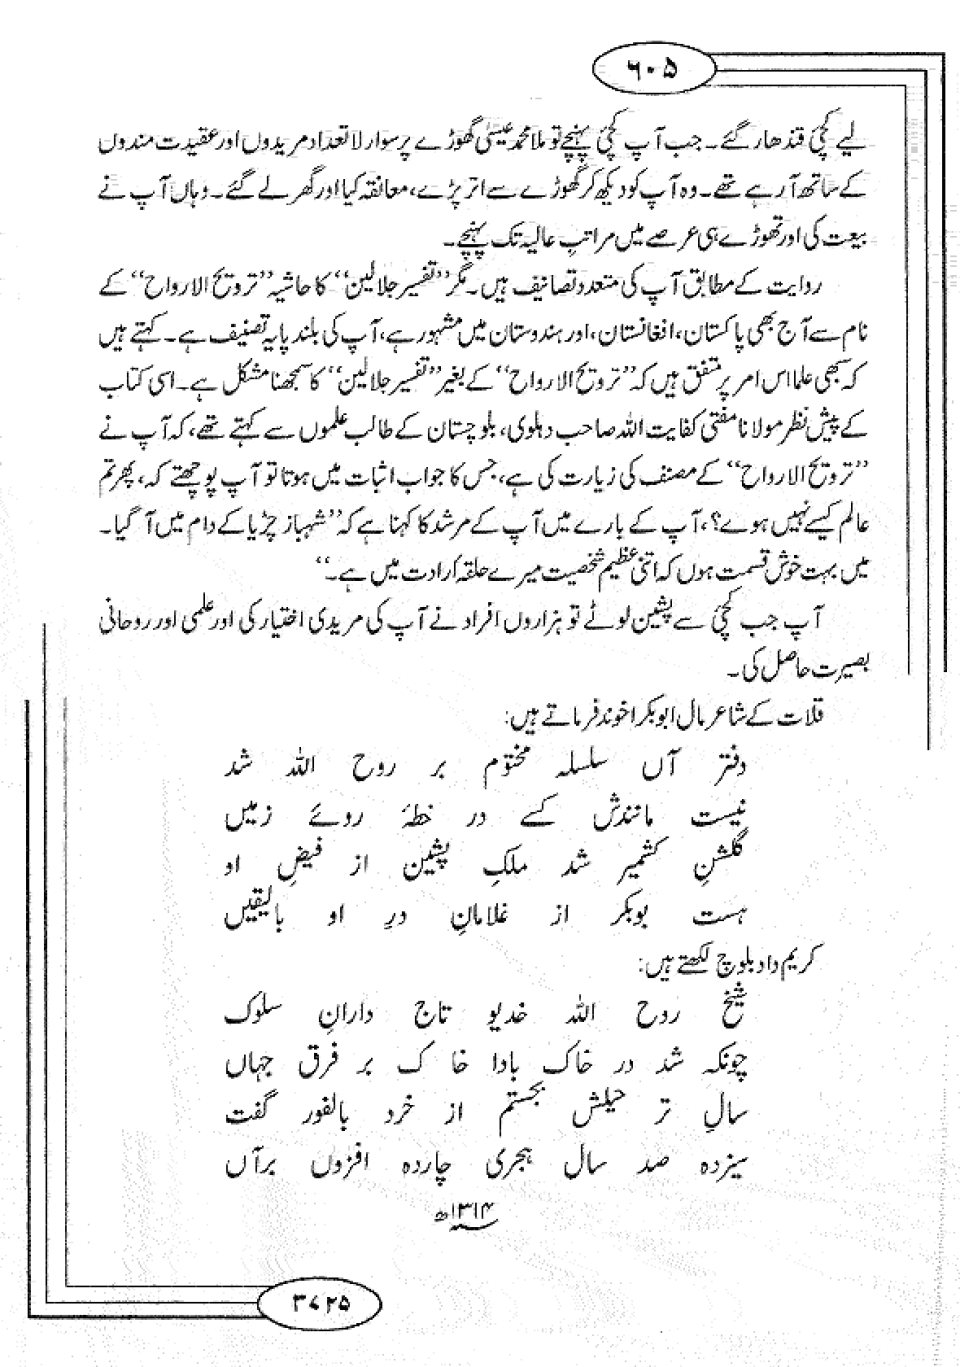 ۶۰۵
لیے کچیُ قندھار گئے۔ جب آپ کچیُ پہنچے تو ملا محمد عیسیٰ گھوڑے پر سوار لاتعداد مریدوں اور عقیدت مندوں
کے ساتھ آ رہے تھے۔ وہ آپ کو دیکھ کر گھوڑے سے اتر پڑے، معانقہ کیا اور گھر لے گئے۔ وہاں آپ نے
بیعت کی اور تھوڑے ہی عرصے میں مراتبِ عالیہ تک پہنچے۔
روایت کے مطابق آپ کی متعدد تصانیف ہیں۔ مگر ”تفسیر جلالین“ کا حاشیہ ”ترویح الارواح“ کے
نام سے آج بھی پاکستان، افغانستان، اور ہندوستان میں مشہور ہے، آپ کی بلند پایہ تصنیف ہے۔ کہتے ہیں
کہ سبھی علما اس امر پر متفق ہیں کہ ”ترویح الارواح“ کے بغیر ”تفسیر جلالین“ کا سمجھنا مشکل ہے۔ اسی کتاب
کے پیش نظر مولانا مفتی کفایت اللہ صاحب دہلوی، بلوچستان کے طالب علموں سے کہتے تھے، کہ آپ نے
”ترویح الارواح“ کے مصنف کی زیارت کی ہے، جس کا جواب اثبات میں ہوتا تو آپ پوچھتے کہ، پھر تم
عالم کیسے نہیں ہوے؟، آپ کے بارے میں آپ کے مرشد کا کہنا ہے کہ ”شہباز چڑیا کے دام میں آ گیا۔
میں بہت خوش قسمت ہوں کہ اتنی عظیم شخصیت میرے حلقہ ارادت میں ہے۔“
آپ جب کچیُ سے پشین لوٹے تو ہزاروں افراد نے آپ کی مریدی اختیار کی اور علمی اور روحانی
بصیرت حاصل کی۔
قلات کے شاعر مال ابوبکر اخوند فرماتے ہیں:
دفتر آں سلسلہ مختوم بر روح اللہ شد
نیست مانندش کسے در خطۂ روئے زمیں
گلشنِ کشمیر شد ملکِ پشین از فیضِ او
ہست بوبکر از غلامانِ درِ او بالیقیں
کریم داد بلوچ لکھتے ہیں:
شیخ روح اللہ خدیو تاج دارانِ سلوک
چونکہ شد در خاک بادا خاک بر فرق جہاں
سالِ تر حیلش بجستم از خرد بالفور گفت
سیزدہ صد سال ہجری چاردہ افزوں برآں
۱۳۱۴ھ
۳۷۲۵